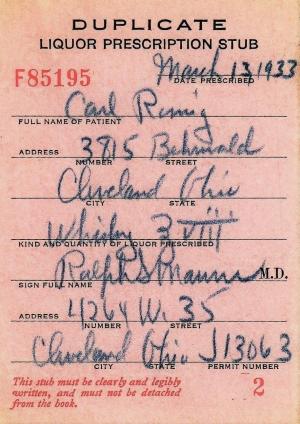 DUPLICATE
LIQUOR PRESCRIPTION STUB
F85195
March 13, 1933
DATE PRESCRIBED
Carl
FULL NAME OF PATIENT
ADDRESS 3815
NUMBER STREET
Cleveland Ohio
CITY STATE
Whisky ℥ VIII
KIND AND QUANTITY OF LIQUOR PRESCRIBED
Ralph S M.D.
SIGN FULL NAME
ADDRESS 4264 W. 35
NUMBER STREET
Cleveland Ohio J13063
CITY STATE PERMIT NUMBER
This stub must be clearly and legibly
written, and must not be detached
from the book.
2